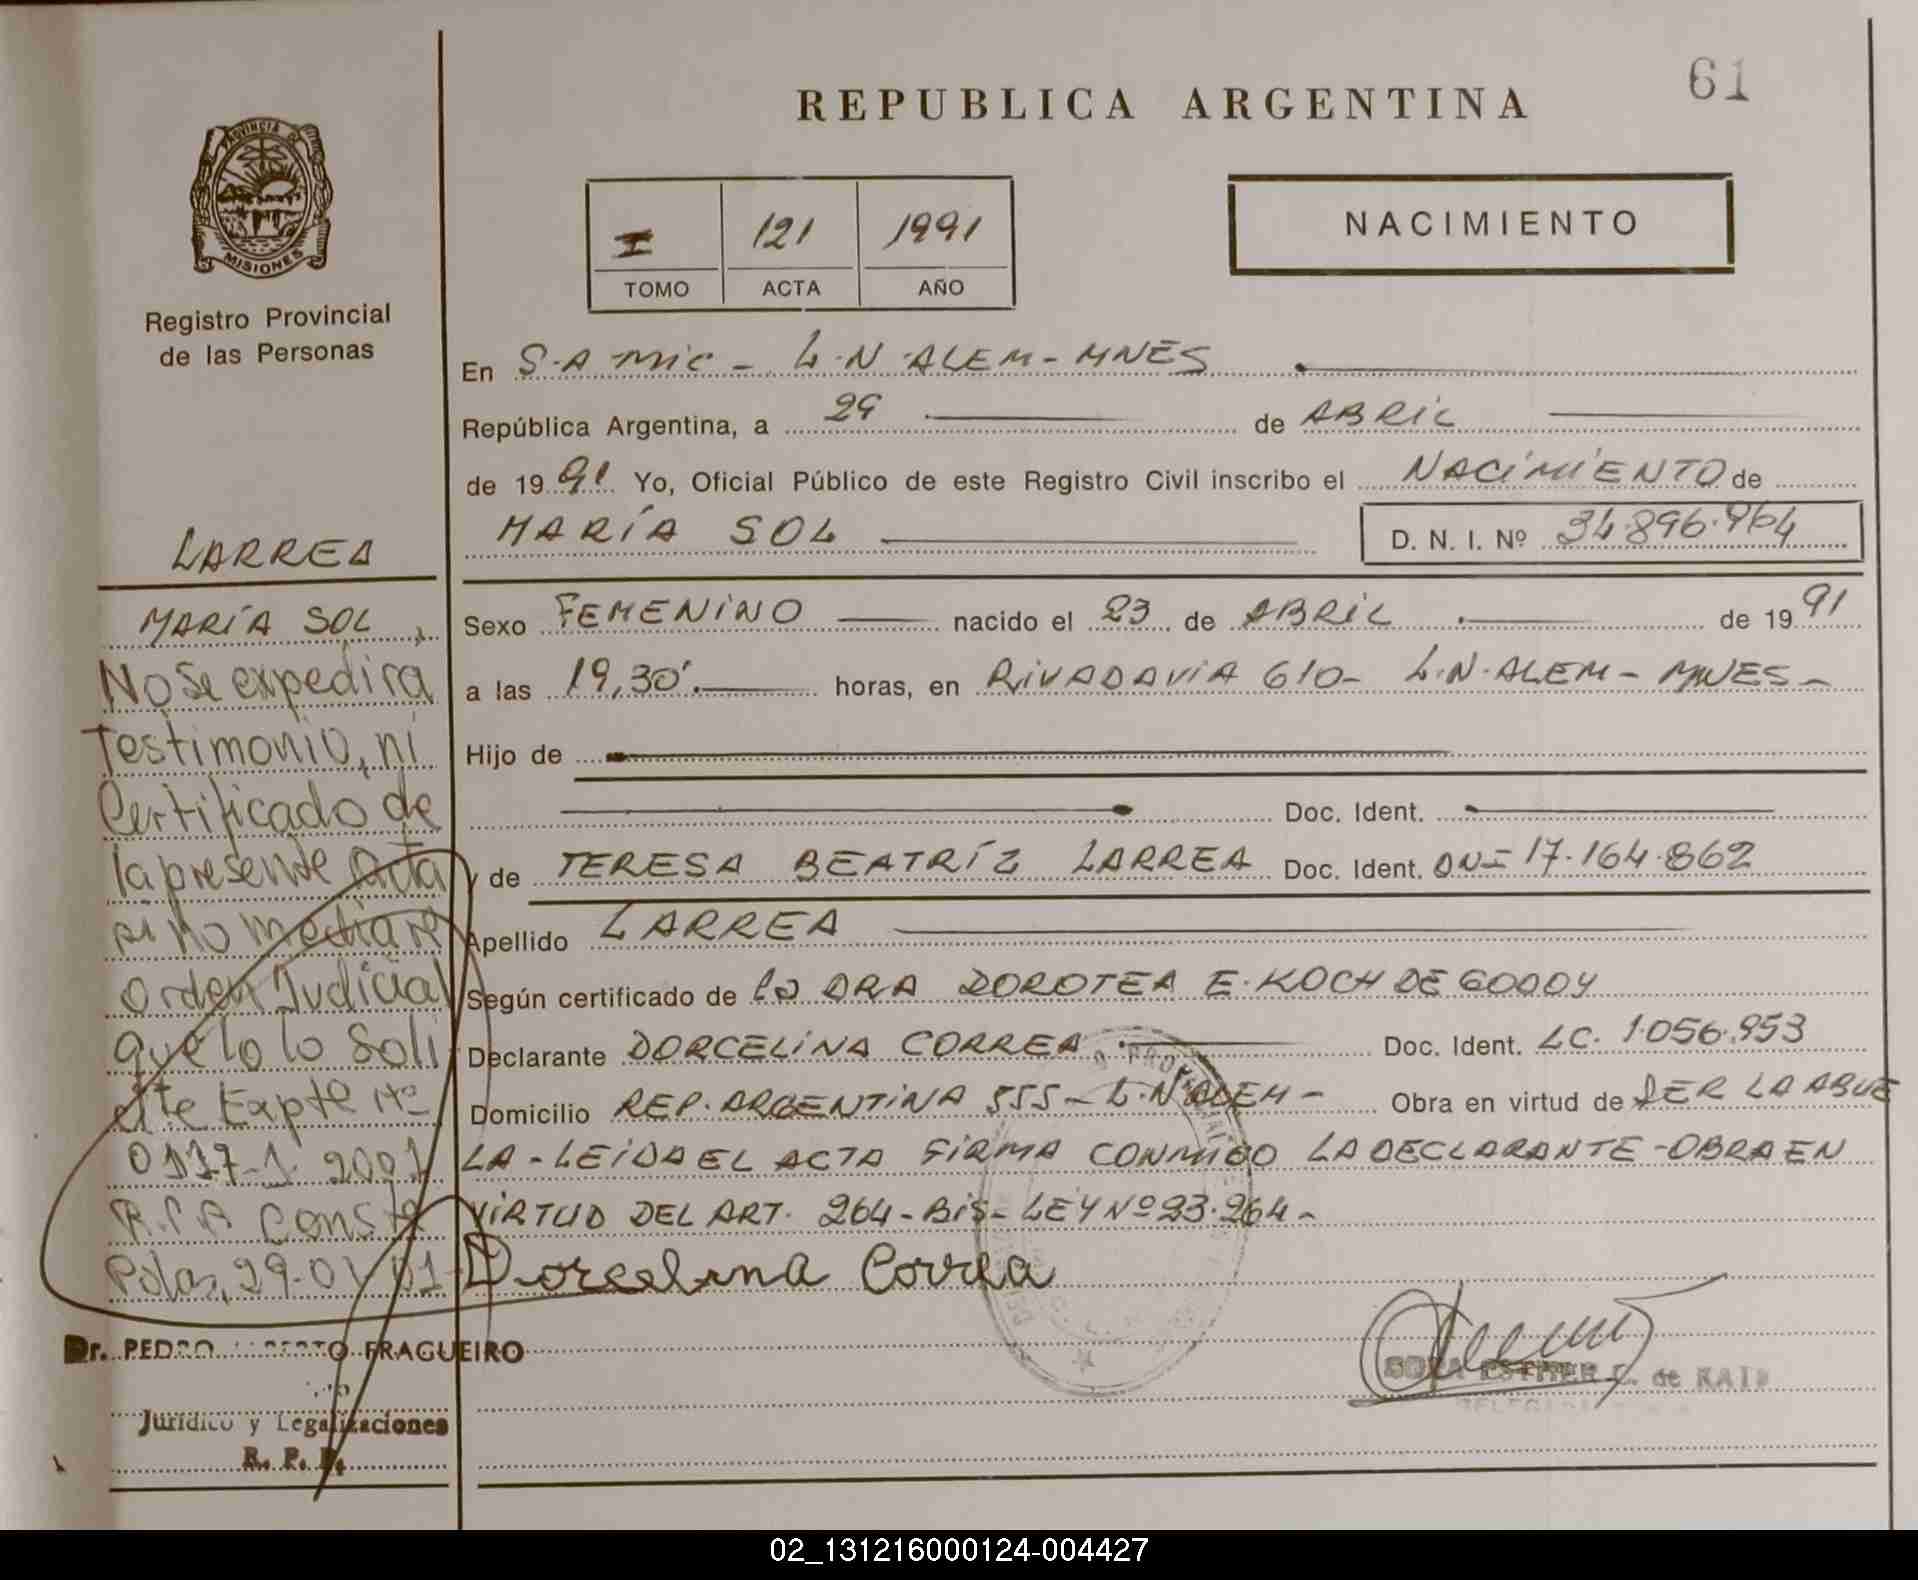 61
REPUBLICA ARGENTINA
PROVINCIA DE
MISIONES
Registro Provincial
de las Personas
I 121 1991
TOMO ACTA AÑO
NACIMIENTO
En S.A MIC - L.N.ALEM-MNES
República Argentina, a 29 de ABRIL
de 19 91 Yo, Oficial Público de este Registro Civil inscribo el NACIMIENTO de
MARÍA SOL D. N. I. Nº 34.896.964
Sexo FEMENINO nacido el 23 de ABRIL de 19 91
a las 19,30' horas, en RIVADAVIA 610- L.N.ALEM- MNES-
Hijo de
Doc. Ident.
y de TERESA BEATRÍZ LARREA Doc. Ident. DNI 17.164.862
Apellido LARREA
Según certificado de la DRA DOROTEA E. KOCH DE GODOY
Declarante DORCELINA CORREA Doc. Ident. LC. 1.056.953
Domicilio REP. ARGENTINA 555 - L.N ALEM - Obra en virtud de SER LA ABUE
LA - LEIDA EL ACTA FIRMA CONMIGO LA DECLARANTE - OBRA EN
VIRTUD DEL ART. 264 - BIS - LEY Nº 23.264 -
Dorcelina Correa
ESTHER de
LARREA
MARÍA SOL
No se expedira
Testimonio, ni
Certificado de
la presente acta
si no mediare
Orden Judicial
que lo lo soli
cite Expte Nº
R.P.P. Consta
Pdas, 29-01
Dr. PEDRO FRAGUEIRO
Jurídico y Legalizaciones
R. P. P.
02_131216000124-004427